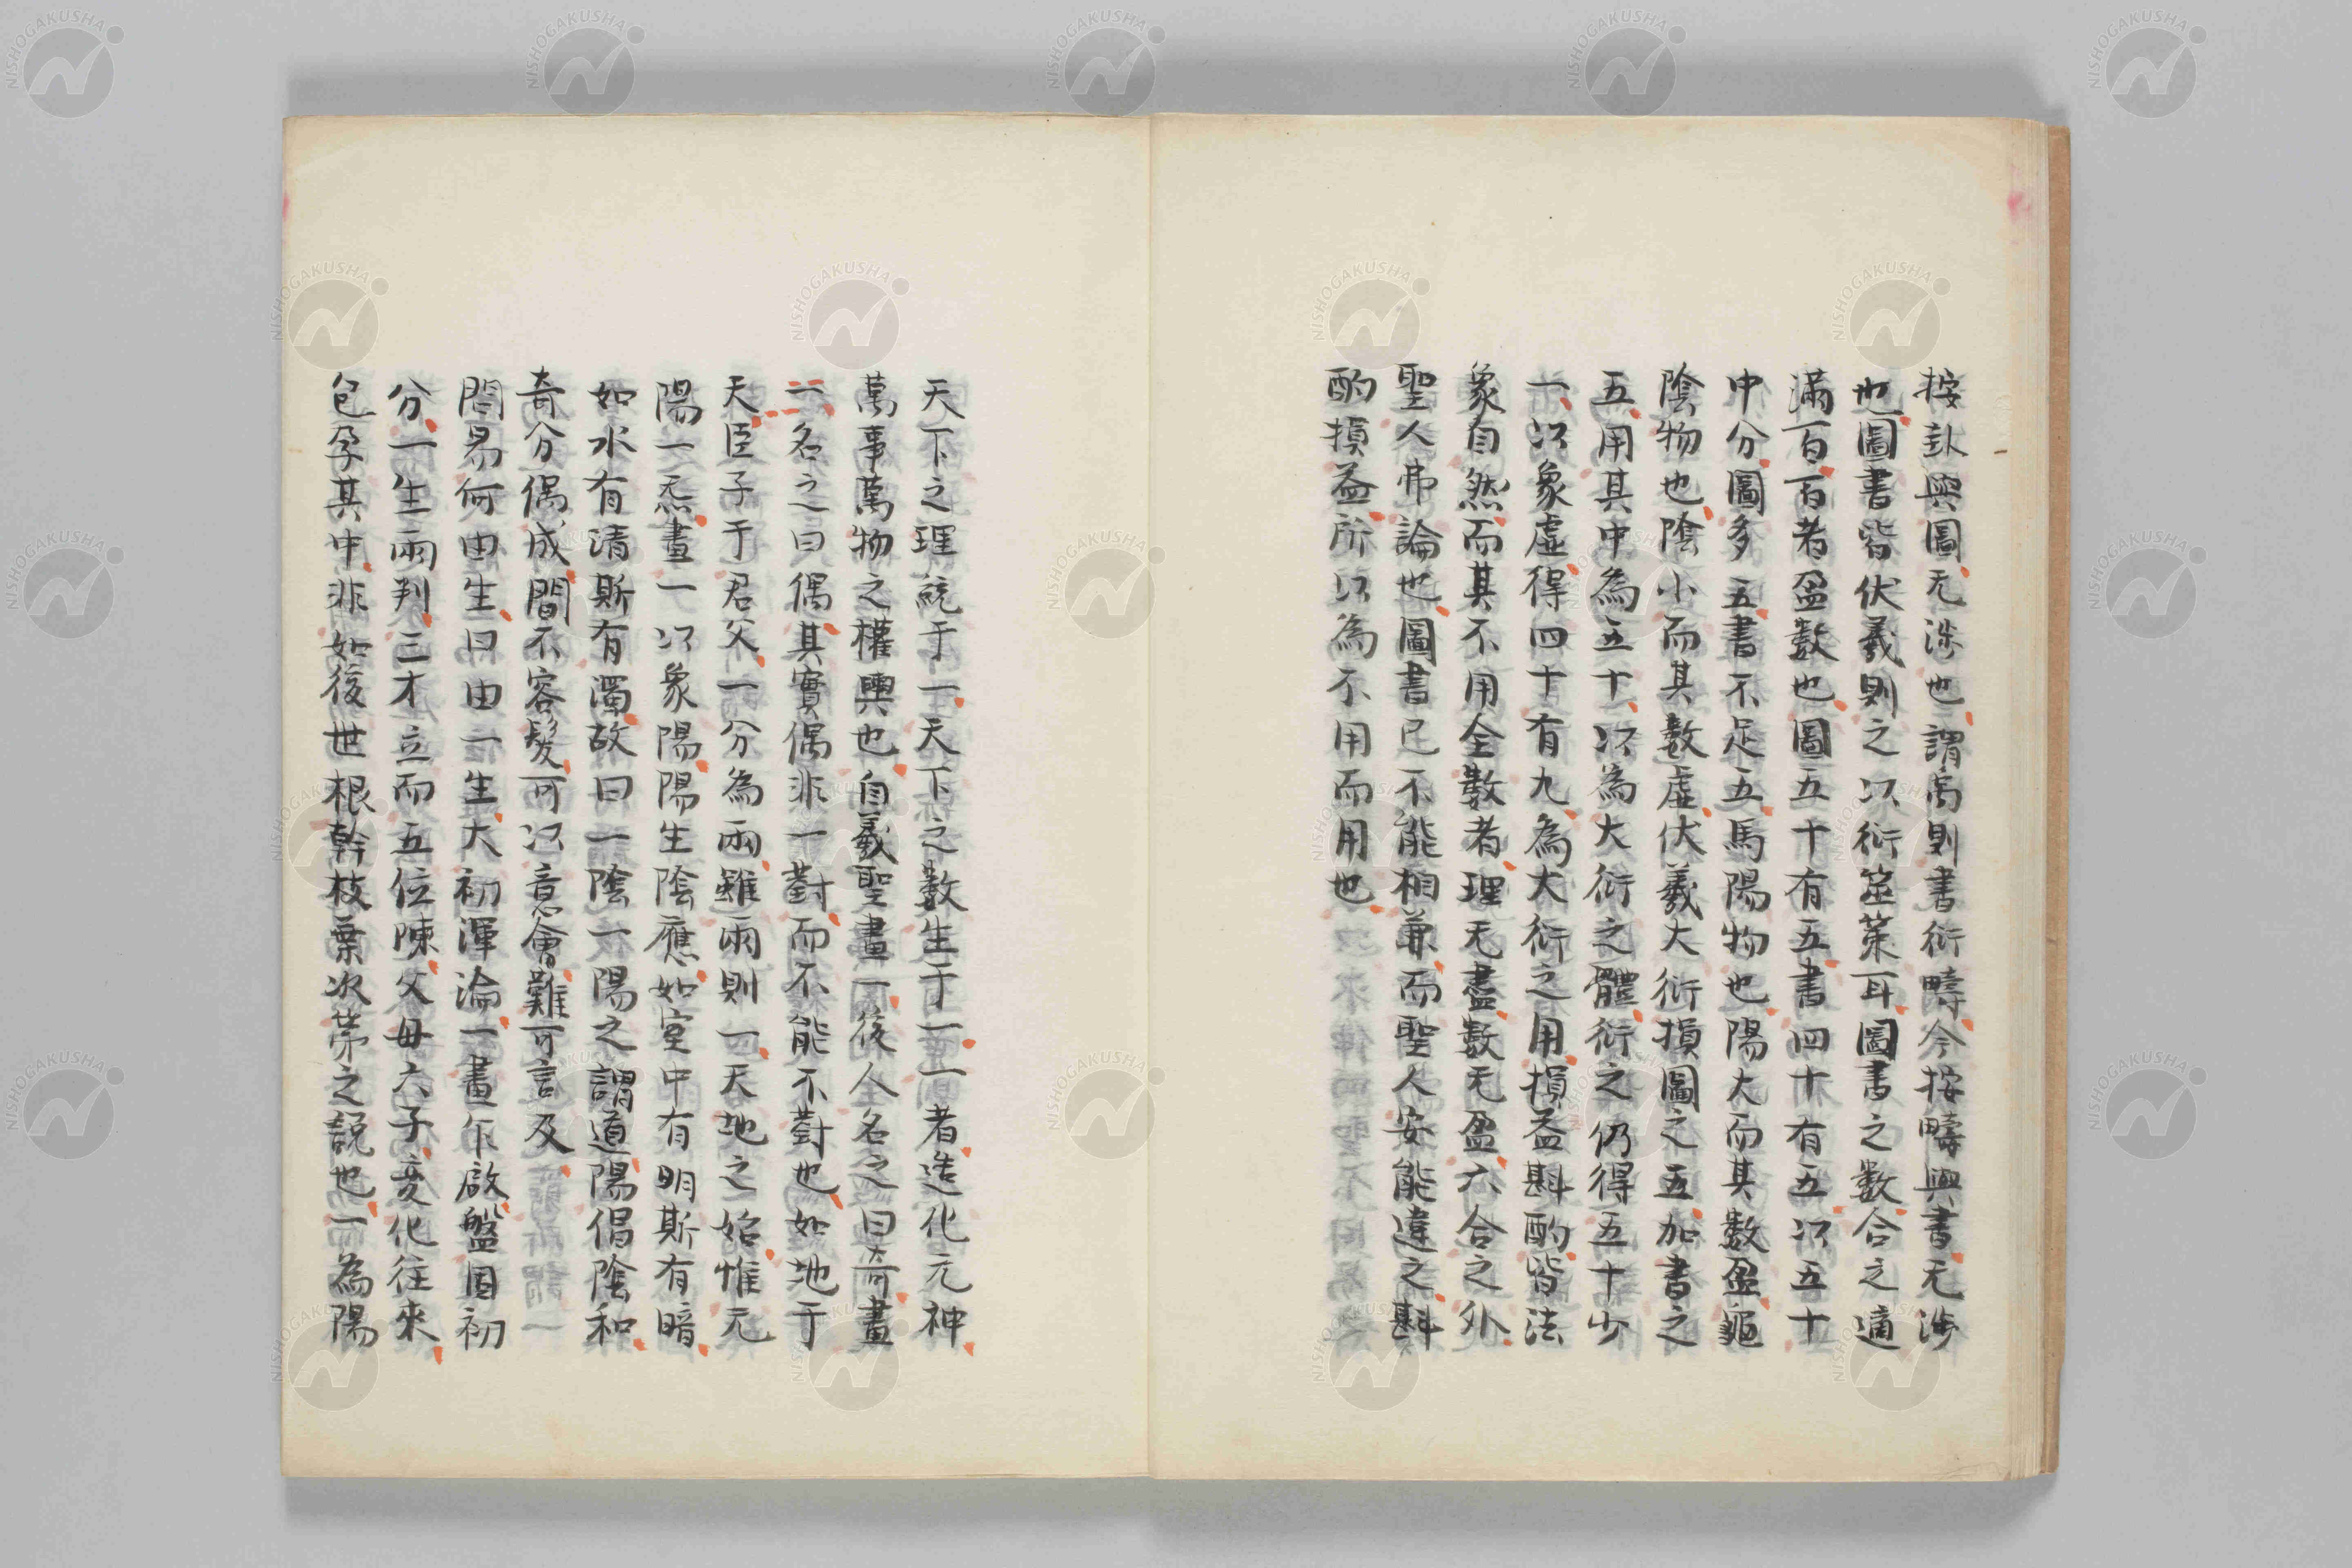 按卦與圖无涉也謂禹則書衍疇今按疇與書无涉
也圖書皆伏羲則之以衍筮策耳圖書之數合之適
滿百百者盈數也圖五十有五書四十有五以五十
中分圖多五書不足五馬陽物也陽大而其數盈龜
陰物也陰小而其數虛伏羲大衍損圖之五加書之
五用其中為五十以為大衍之體衍之仍得五十少
一以象虛得四十有九為大衍之用損益斟酌皆法
象自然而其不用全數者理无盡數无盈六合之外
聖人弗論也圖書已不能相兼而聖人安能違之斟
酌損益所以為不用而用也
天下之理統于一天下之數生于一一者造化元神
萬事萬物之權輿也自羲聖畫一後人名之曰奇畫
二名之曰偶其實偶非一對而不能不對也如地于
天臣子于君父一分為兩雖兩則一天地之始惟元
陽一炁畫一以象陽陽生陰應如室中有明斯有暗
如水有清斯有濁故曰一陰一陽之謂道陽倡陰和
奇分偶成間不容髮可以意會難可言及
問易何由生曰由一生大初渾淪一畫乍啟盤囙初
分一生兩判三才立而五位陳父母六子变化往來
包孕其中非如後世根幹枝葉次第之說也一為陽
NISHOGAKUSHA